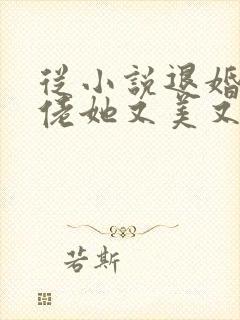 從小說退婚
佬她又美又
若斯